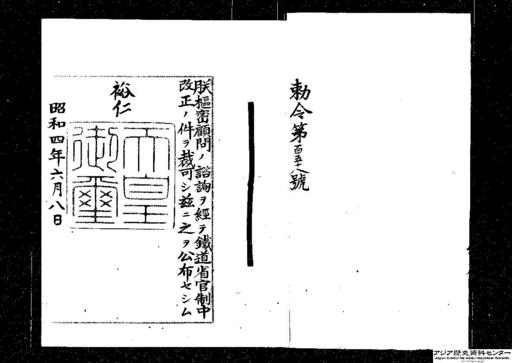 勅令第百五十八號
朕樞密顧問ノ諮詢ヲ經テ鐵道省官制中
改正ノ件ヲ裁可シ茲ニ之ヲ公布セシム
裕仁
天皇
御璽
昭和四年六月八日
アジア歴史資料センター
Japan Center for Asian Historical Records